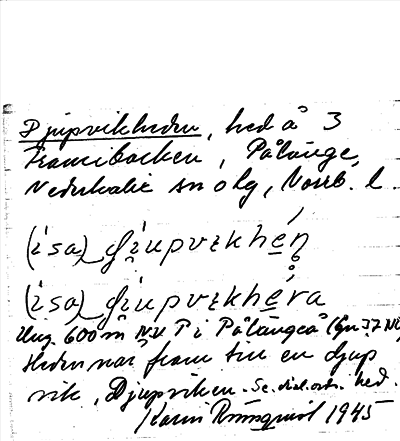 Djupvikheden, hed å 3
Framibacken, Pålänge,
Nederkalix sn o lg, Norrb. l.
(i sa) djupvikhén
(i sa) djupvikhéra
600 m NV P i Pålänge
Heden når fram till en djup
vik, Djupviken. Se. dial. ort. hed.
Karin 1945